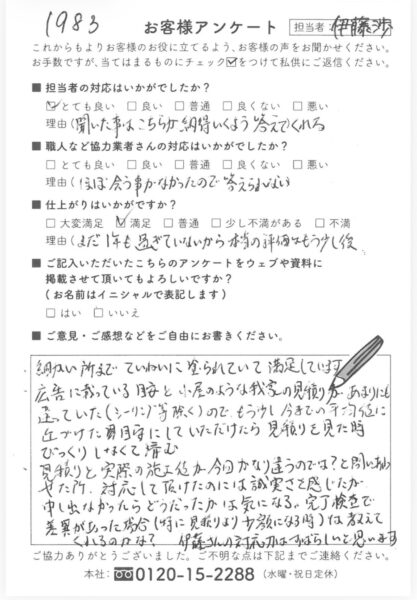 1983
お客様アンケート 担当者 伊藤渉
これからもよりお客様のお役に立てるよう、お客様の声をお聞かせください。
お手数ですが、当てはまるものにチェック☑をつけて私供にご返信ください。
■ 担当者の対応はいかがでしたか?
☑とても良い □良い □普通 □良くない □悪い
理由(聞いた事はこちらが納得いくよう答えてくれる
■ 職人など協力業者さんの対応はいかがでしたか?
□とても良い □良い □普通 □良くない □悪い
理由(ほぼ会う事がなかったので答えられない
■ 仕上がりはいかがですか?
□大変満足 ☑満足 □普通 □少し不満がある □不満
理由(まだ1年も過ぎていないから本当の評価はもう少し後
■ ご記入いただいたこちらのアンケートをウェブや資料に
掲載させて頂いてもよろしいですか?
(お名前はイニシャルで表記します)
□はい □いいえ
■ ご意見・ご感想などをご自由にお書きください。
細かい所まで ていねいに塗られていて 満足しています
広告に載っている 小屋のような我家の見積りが あまりにも
違っていた(シーリング等除く)ので もう少し 今までの平均値に
近づけた にしていただけたら 見積りを見た時
びっくりしなくて済む
見積りと実際の施工後が 今回かなり違うのでは?と問い合わ
せた所、対応して頂けたのには誠実さを感じたが
申し出なかったらどうだったかは気になる。完了検査で
差異があった場合(特に見積りより少なくなる時)は教えて
くれるのかな? 伊藤さんの対応力はすばらしいと思います
ご協力ありがとうございました。ご不明な点は下記までご連絡ください。
本社:0120-15-2288(水曜・祝日定休)